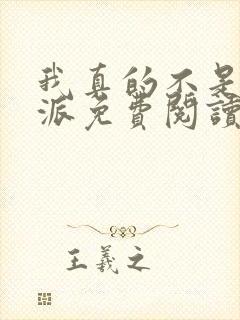 我真的不是
派免費閱讀
王羲之